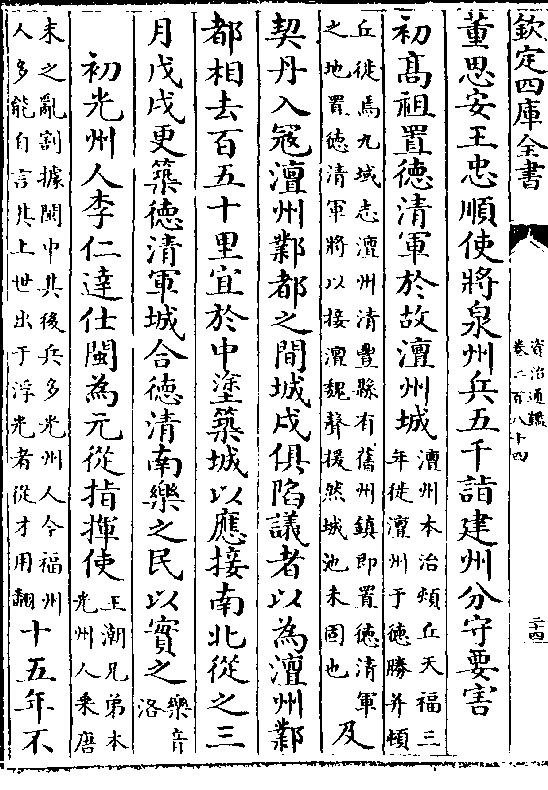 欽定四庫全書
資治通鑑
卷二百八十四
二十四
董思安王忠順使將泉州兵五千詣建州分守要害
初髙祖置徳清軍於故澶州城
澶州本治頓丘天福三
年徙澶州于徳勝并頓
丘徙焉九域志澶州清豐縣有舊州鎮即置徳清軍
之地置徳清軍將以接澶魏聲援然城池未固也
及
契丹入冦澶州鄴都之間城戍俱陷議者以為澶州鄴
都相去百五十里宜於中塗築城以應接南北從之三
月戊戌更築徳清軍城合徳清南樂之民以實之
樂音
洛
初光州人李仁達仕閩為元從指揮使
王潮兄弟本
光州人乘唐
末之亂割據閩中其後兵多光州人今福州
人多能自言其上世出于浮光者從才用翻
十五年不